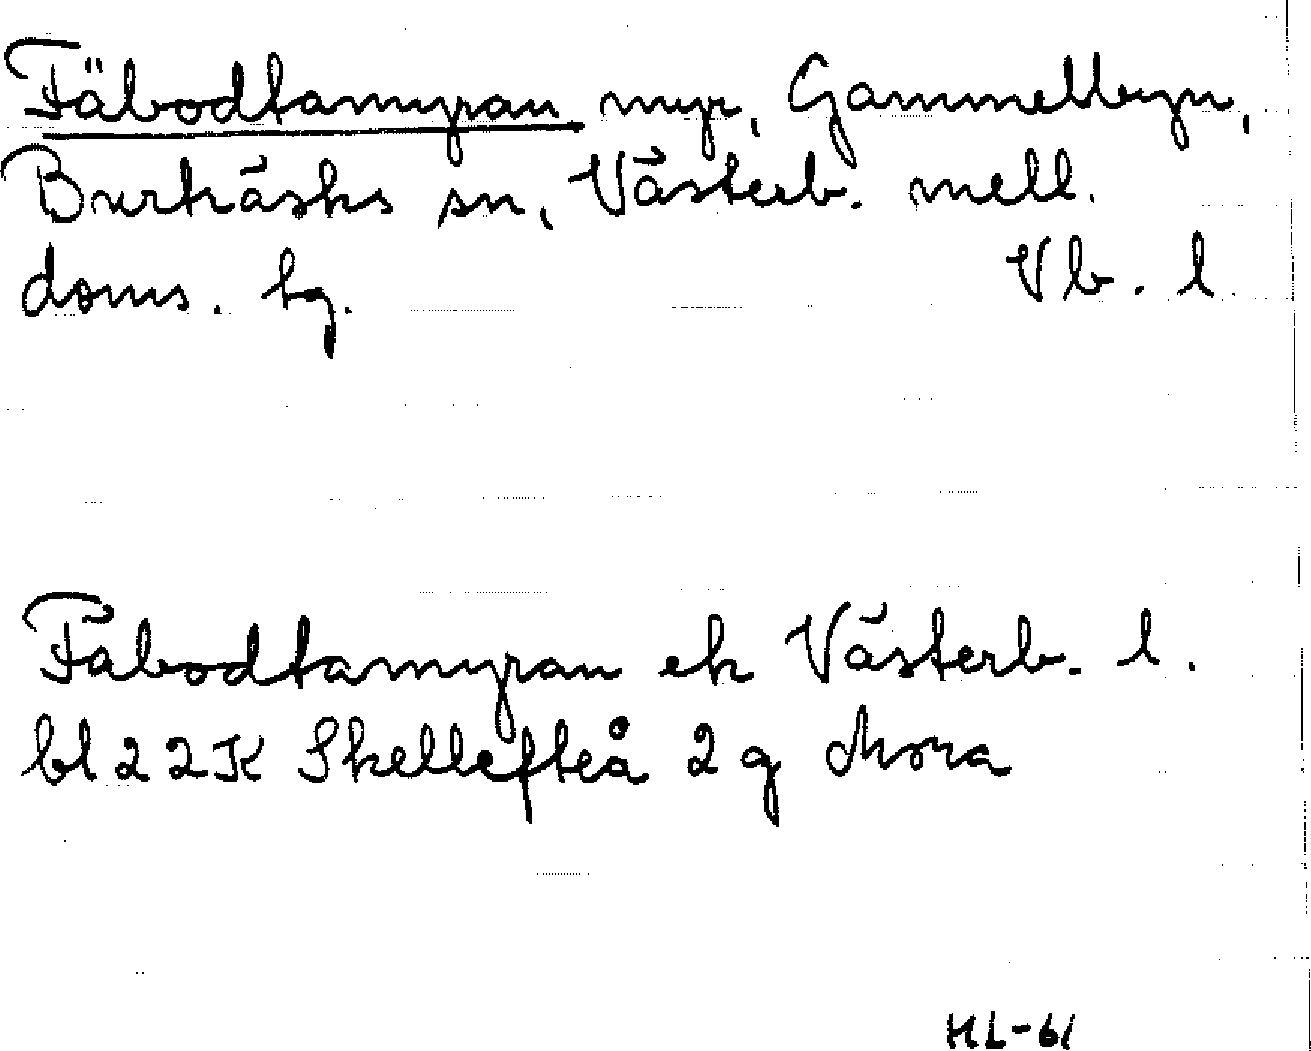 Fäbodtamyran myr, Gammelbyn,
Burträsks sn, Västerb. mell.
doms. tg. Vb. l.
Fäbodtamyran ek Västerb. l.
bl 22K Skellefteå 2g Mora
HL-61